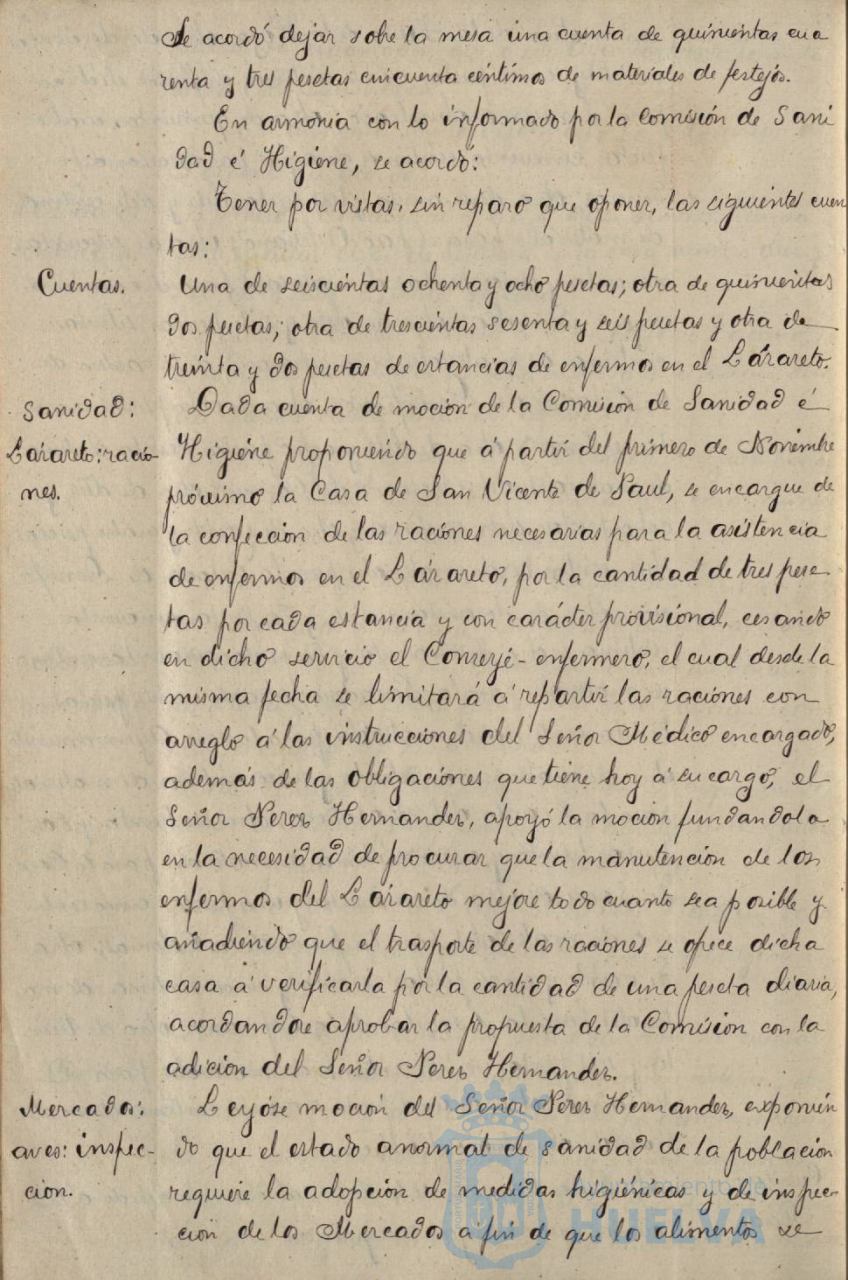 Se acordó dejar sobre la mesa una cuenta de quinientas cua
renta y tres pesetas cincuenta céntimos de materiales de festejos.
En armonía con lo informado por la Comisión de Sani
dad é Higiene, se acordó:
Tener por vistas, sin reparo que oponer, las siguientes cuen
tas:
Cuentas.
Una de seiscientas ochenta y ocho pesetas; otra de quinientas
dos pesetas; otra de trescientas sesenta y seis pesetas y otra de
treinta y dos pesetas de estancias de enfermos en el Lázareto.
Sanidad:
Lázareto: racio-
nes.
Dada cuenta de moción de la Comisión de Sanidad é
Higiene proponiendo que á partir del primero de Noviembre
próximo la Casa de San Vicente de Paul, se encargue de
la confección de las raciones necesarias para la asistencia
de enfermos en el Lázareto, por la cantidad de tres pese
tas por cada estancia y con carácter provisional, cesando
en dicho servicio el Conserje-enfermero, el cual desde la
misma fecha se limitará á repartir las raciones con
arreglo á las instrucciones del Señor Médico encargado,
además de las obligaciones que tiene hoy á su cargo, el
Señor Perez Hernandez, apoyó la moción fundandola
en la necesidad de procurar que la manutención de los
enfermos del Lázareto mejore todo cuanto sea posible y
añadiendo que el trasporte de las raciones se ofrece dicha
casa á verificarla por la cantidad de una peseta diaria,
acordandose aprobar la propuesta de la Comisión con la
adicion del Señor Perez Hernandez.
Mercados:
aves: inspec-
cion.
Leyóse moción del Señor Perez Hernandez, exponien
do que el estado anormal de sanidad de la población
requiere la adopción de medidas higiénicas y de inspec-
ción de los Mercados á fin de que los alimentos se
Ayuntamiento de
HUELVA